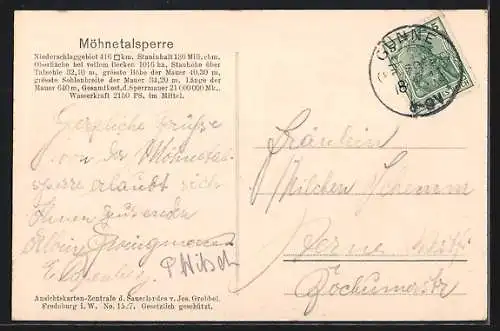 Möhnetalsperre
Niederschlaggebiet 416 □km. Stauinhalt 130 Mill. cbm.
Oberfläche bei vollem Becken 1016 ha. Stauhöhe über
Talsohle 32,10 m, grösste Höhe der Mauer 40,30 m,
grösste Sohlenbreite der Mauer 34,20 m. Länge der
Mauer 640 m, Gesamtkost. d. Sperrmauer 21 000 000 Mk.
Wasserkraft 2150 PS. im Mittel.
GÜNNE
8
Herzliche Grüße
von der Möhnetal-
sperre erlaubt sich
Ihnen zu senden
Albin
P Witsch
Fräulein
Milchen Schemm
Herne Westf
Bochumerstr
Ansichtskarten-Zentrale d. Sauerlandes v. Jos. Grobbel.
Fredeburg i. W. No. Gesetzlich geschützt.